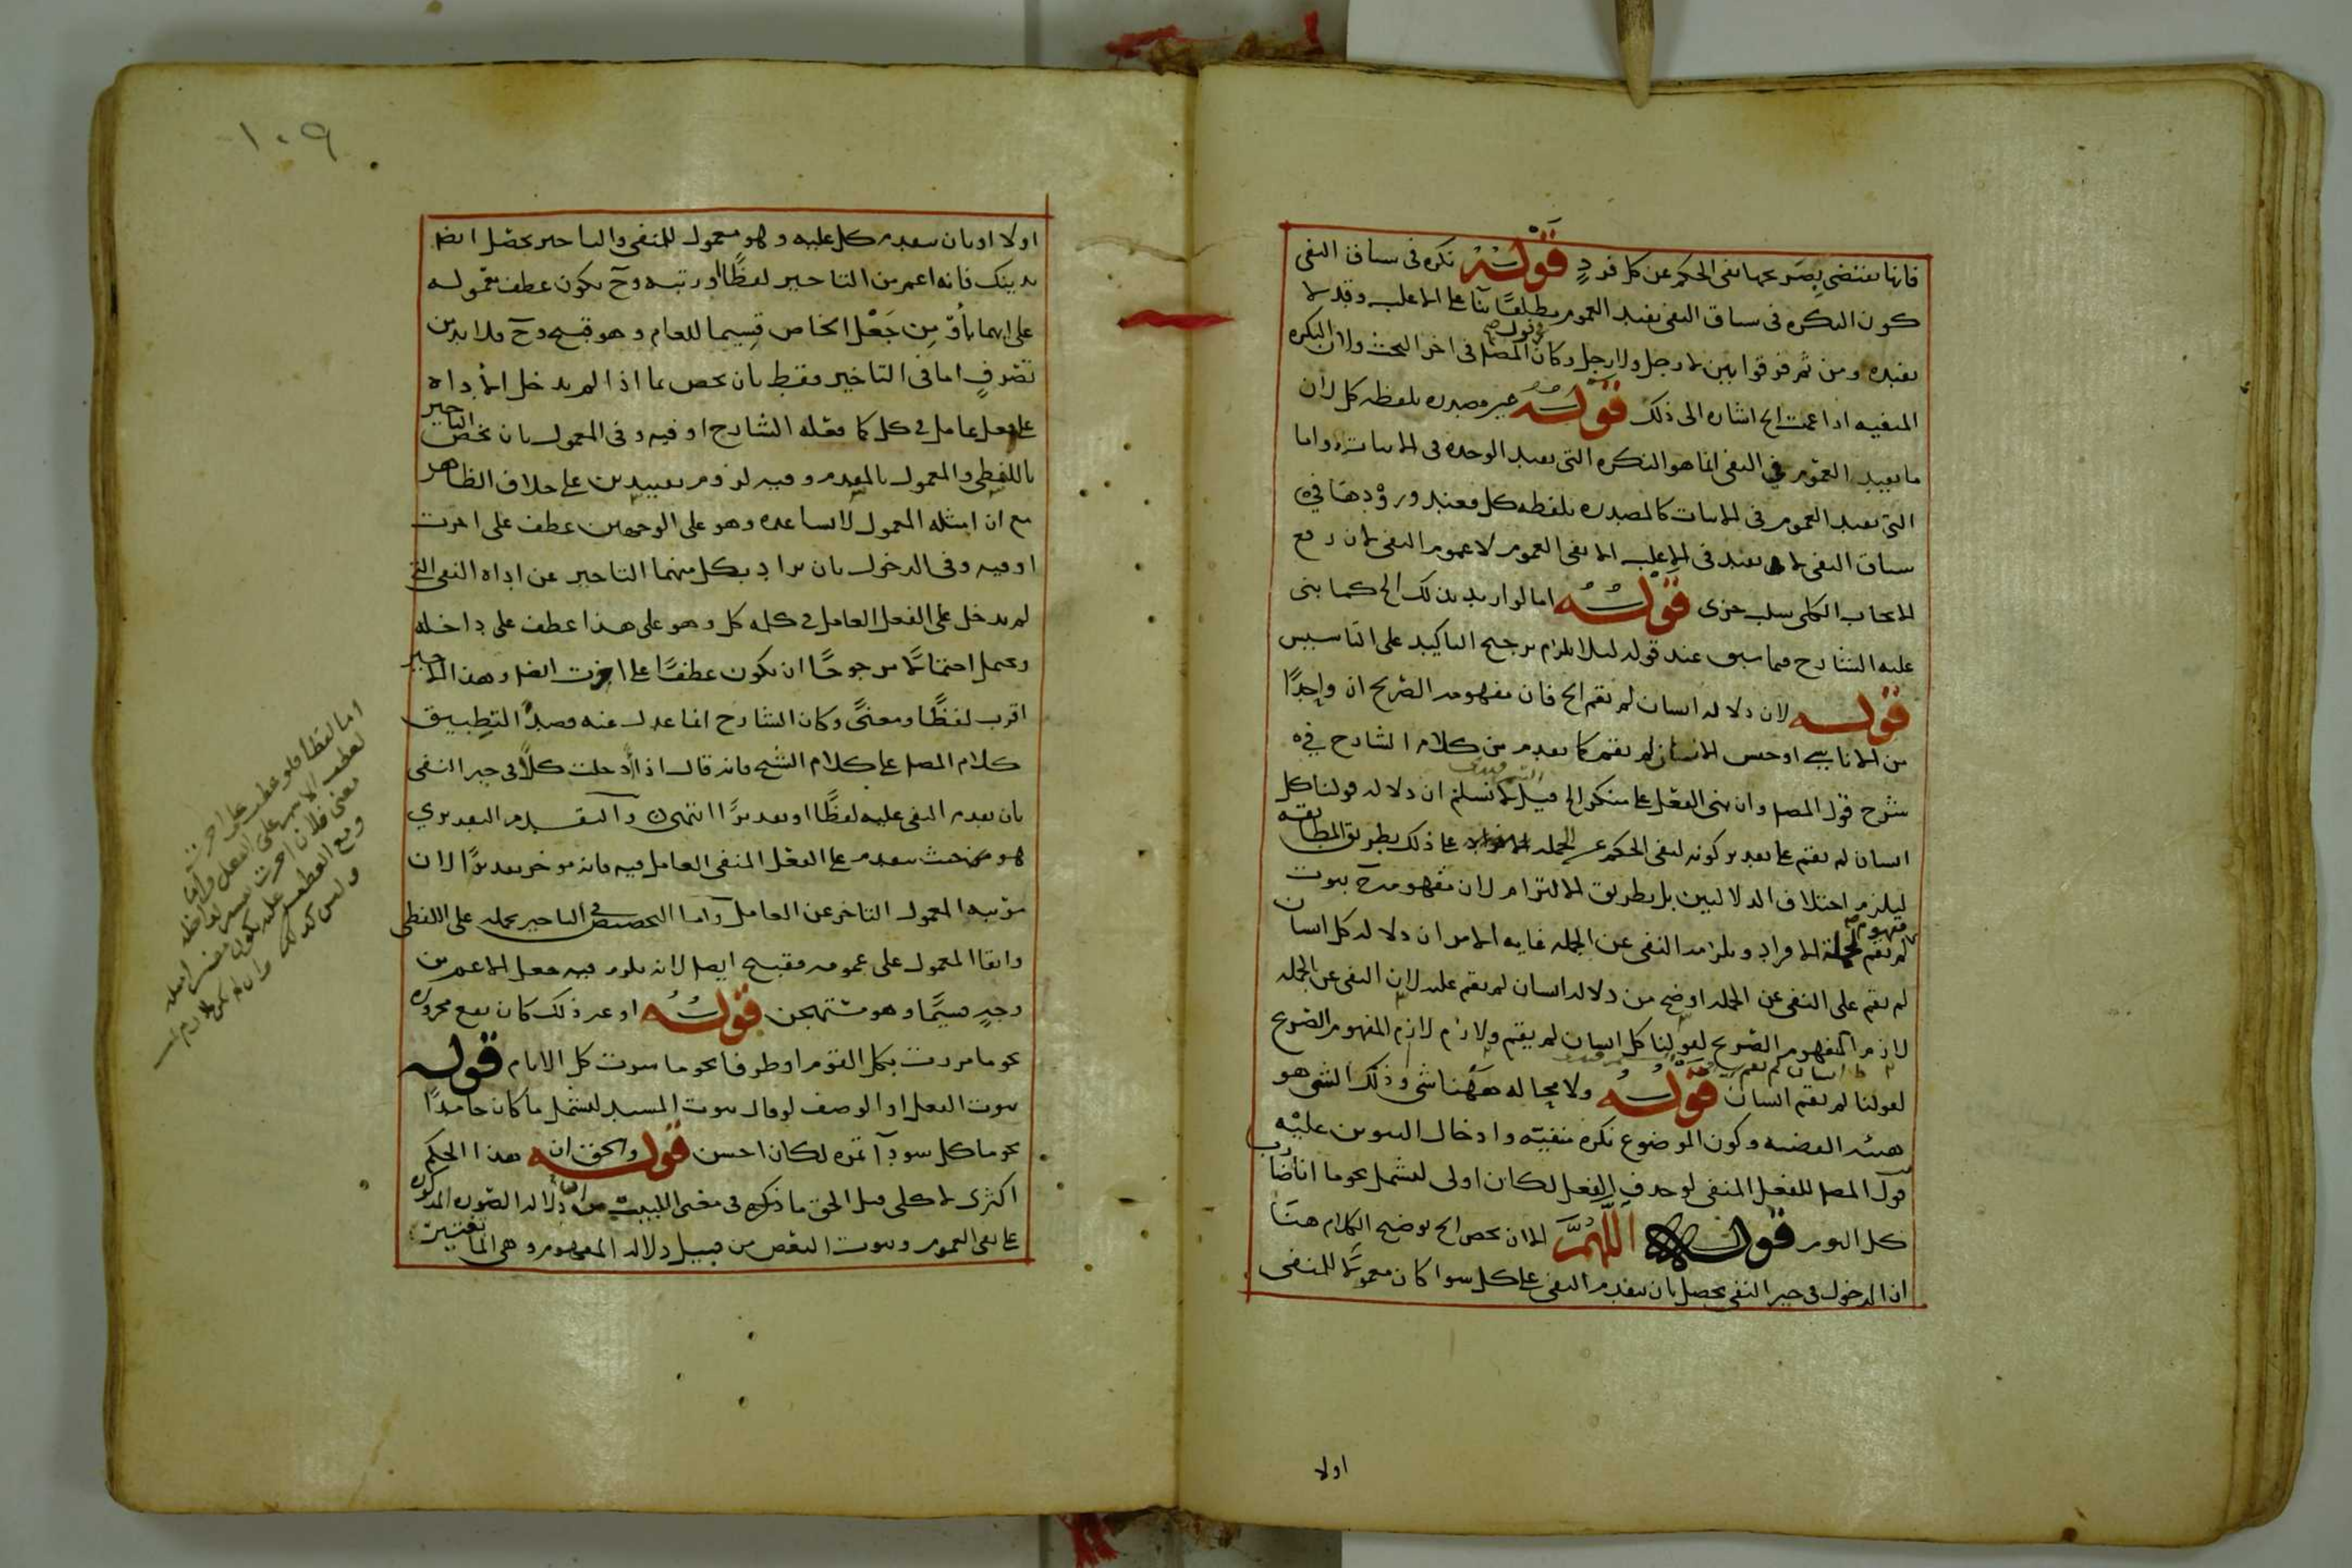 فانها تقتضي بصريحها نفى الحكم عن كل فردٍ قوله نكره فى سياق النفى
كون النكره فى سياق النفى تفيد العموم مطلقًا بنآ على الاغلب وقد لا
تفيده ومن ثم فرقوا بين لا رجل ولا رجل وكان المصل فى اخر البحث ولان النكره
المنفيه اذا عمت الخ اشاره الى ذلك قوله غير مصدره بلفظه كل لان
ما يفيد العموم فى النفى انما هو النكره التى تفيد الوحده فى الاثبات واما
التى تفيد العموم فى الاثبات كالمصدره بلفظه كل فعند ورودها فى
سياق النفى لا تفيد فى الاغلب الا نفى العموم لا عموم النفى لان رفع
الايجاب الكلى سلب جزى قوله اما لو اريد بذلك الخ كما بنى
عليه الشارح فيما سبق عند قوله ليلا يلزم ترجيح التاكيد على التاسيس
قوله لان دلاله انسان لم يقم الخ فان مفهومه الصريح ان واحدًا
من الاناسى او جنس الانسان لم يقم كما تقدم من كلام الشارح فى
شرح قول المصل وان بنى الفعل على منكر الخ قيل لا نسلم ان دلاله قولنا كل
انسان لم يقم على تقدير كونه لنفى الحكم عن الجمله على ذلك بطريق المطابقه
ليلزم اختلاف الدلالتين بل بطريق الالتزام لان مفهومه ح ثبوت
لم يقم لجملة الافراد ويلزمه النفى عن الجمله غايه الامر ان دلاله كل انسان
لم يقم على النفى عن الجمله اوضح من دلاله انسان لم يقم عليه لان النفى عن الجمله
لازم المفهوم الصريح لقولنا كل انسان لم يقم ولازم لازم المفهوم الصريح
لقولنا لم يقم انسان قوله ولا محاله ههنا شى وذلك الشى هو
هيئه القضيه وكون الموضوع نكره منفيّه وادخال التنوين عليْه
قول المصل للفعل المنفى لو حذف الفعل لكان اولى ليشمل نحو ما انا ضارب
كل اليوم قوله اللّهمّ الا ان يخص الخ توضيح الكلام هنَا
ان الدخول فى حيز النفى يحصل بان يتقدم النفى على كل سوا كان معمولًا للمنفى
اولا
١٠٩
اولا او بان يتقدم كل عليه وهو معمول للمنفى والتاخير يحصل ايضا
بذينك فانه اعم من التاخير لفظًا او رتبه وح يكون عطف معموله
على ايهما بأوْ مِن جَعْل الخاص قِسِيما للعام وهو قبيح وح فلا بد من
تصَرفٍ اما فى التاخير فقط بان يخص بما اذا لم يدخل الأداه
على فعل عامل فى كل كما فعله الشارح او فيه وفى المعمول بان يخص التاخير
باللفظي والمعمول بالمقدم وفيه لزوم تقييدين على خلاف الظاهر
مع ان امثله المعمول لا تساعده وهو على الوجهين عطف على اخرت
او فيه وفى الدخول بان يراد بكل منهما التاخير عن اداه النفى التى
لم يدخل على الفعل العامل فى كلمه كل وهو على هذا عطف على داخله
ويحمل احتمالًا مرجوحًا ان يكون عطفًا على اخرت ايضا وهذا الاخير
اقرب لفظًا ومعنىً وكان الشارح انما عدل عنه قصدًا لتطبيق
كلام المصل على كلام الشيخ فانه قال اذا ادخلت كلًا فى حيز النفى
بان تقدم النفى عليه لفظًا او تقديرًا انتهى والتقديم التقديري
هو من حيث يتقدم على الفعل المنفى العامل فيه فانه موخر تقديرًا لان
مرتبه المعمول التاخر عن العامل واما التخصيص فى التاخير بحمله على اللفظى
وابقا المعمول على عمومه فقبيح ايضا لانه يلزم فيه جعل الاعم من
وجهٍ قسيمًا وهو مستهجن قوله او غير ذلك كان يقع مجرورا
نحو ما مررت بكل القوم او ظرفا نحو ما سرت كل الايام قوله
ثبوت الفعل او الوصف لو قال ثبوت المسند ليشمل ما كان جامدًا
نحو ما كل سودآ تمره لكان احسن قوله والحق ان هذا الحكم
اكثرى لا كلى قيل الحق ما ذكره فى مغنى اللبيب من ان دلاله الصوره المذكوره
على نفى العموم وثبوت البعض من قبيل دلاله المفهوم وهى انما تعتبر